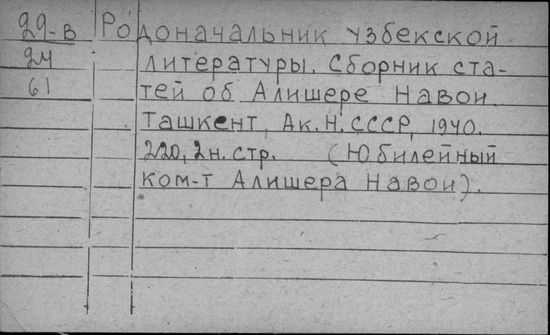 29-в Родоначальник узбекской
24 литературы. Сборник ста-
61 тей об Алишере Навои.
Ташкент, Ак.Н.СССР, 1940.
220, 2н. стр. (Юбилейный
ком-т Алишера Навои).